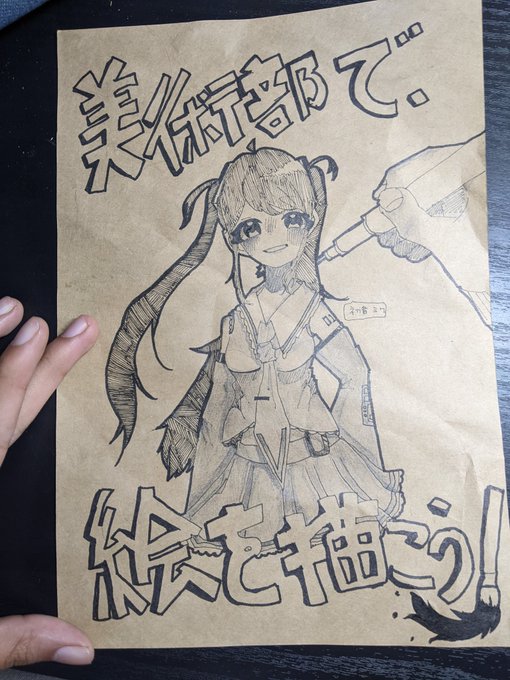 美術部で.
01
初音ミク
絵を描こう!